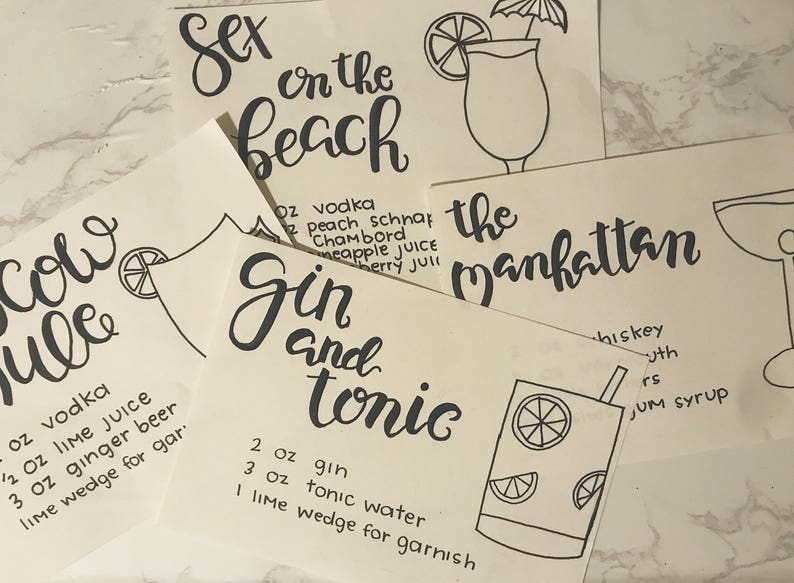 Sex
on the
beach
oz vodka
oz peach schnap
chambord
neapple juice
berry jui
the
manhattan
2 oz whiskey
uth
ers
gum syrup
scow
ule
oz vodka
1/2 oz lime juice
3 oz ginger beer
lime wedge for garni
gin
and
tonic
2 oz gin
3 oz tonic water
1 lime wedge for garnish